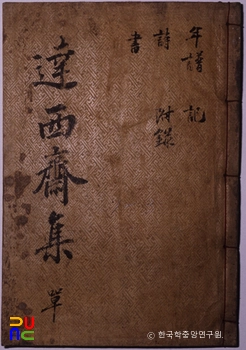 達西齋集 單
年譜 記
詩 附錄
書
© 한국학중앙연구원